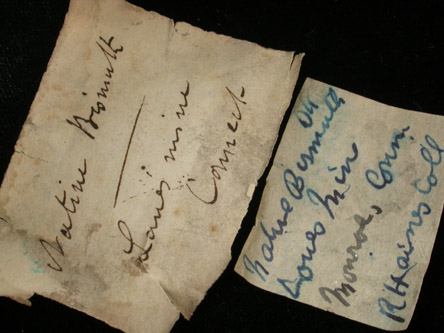 Native Bismuth
Lane's mine
Connect-
Native Bismuth
Lanes Min
Monroe, Conn.
R Haines Coll